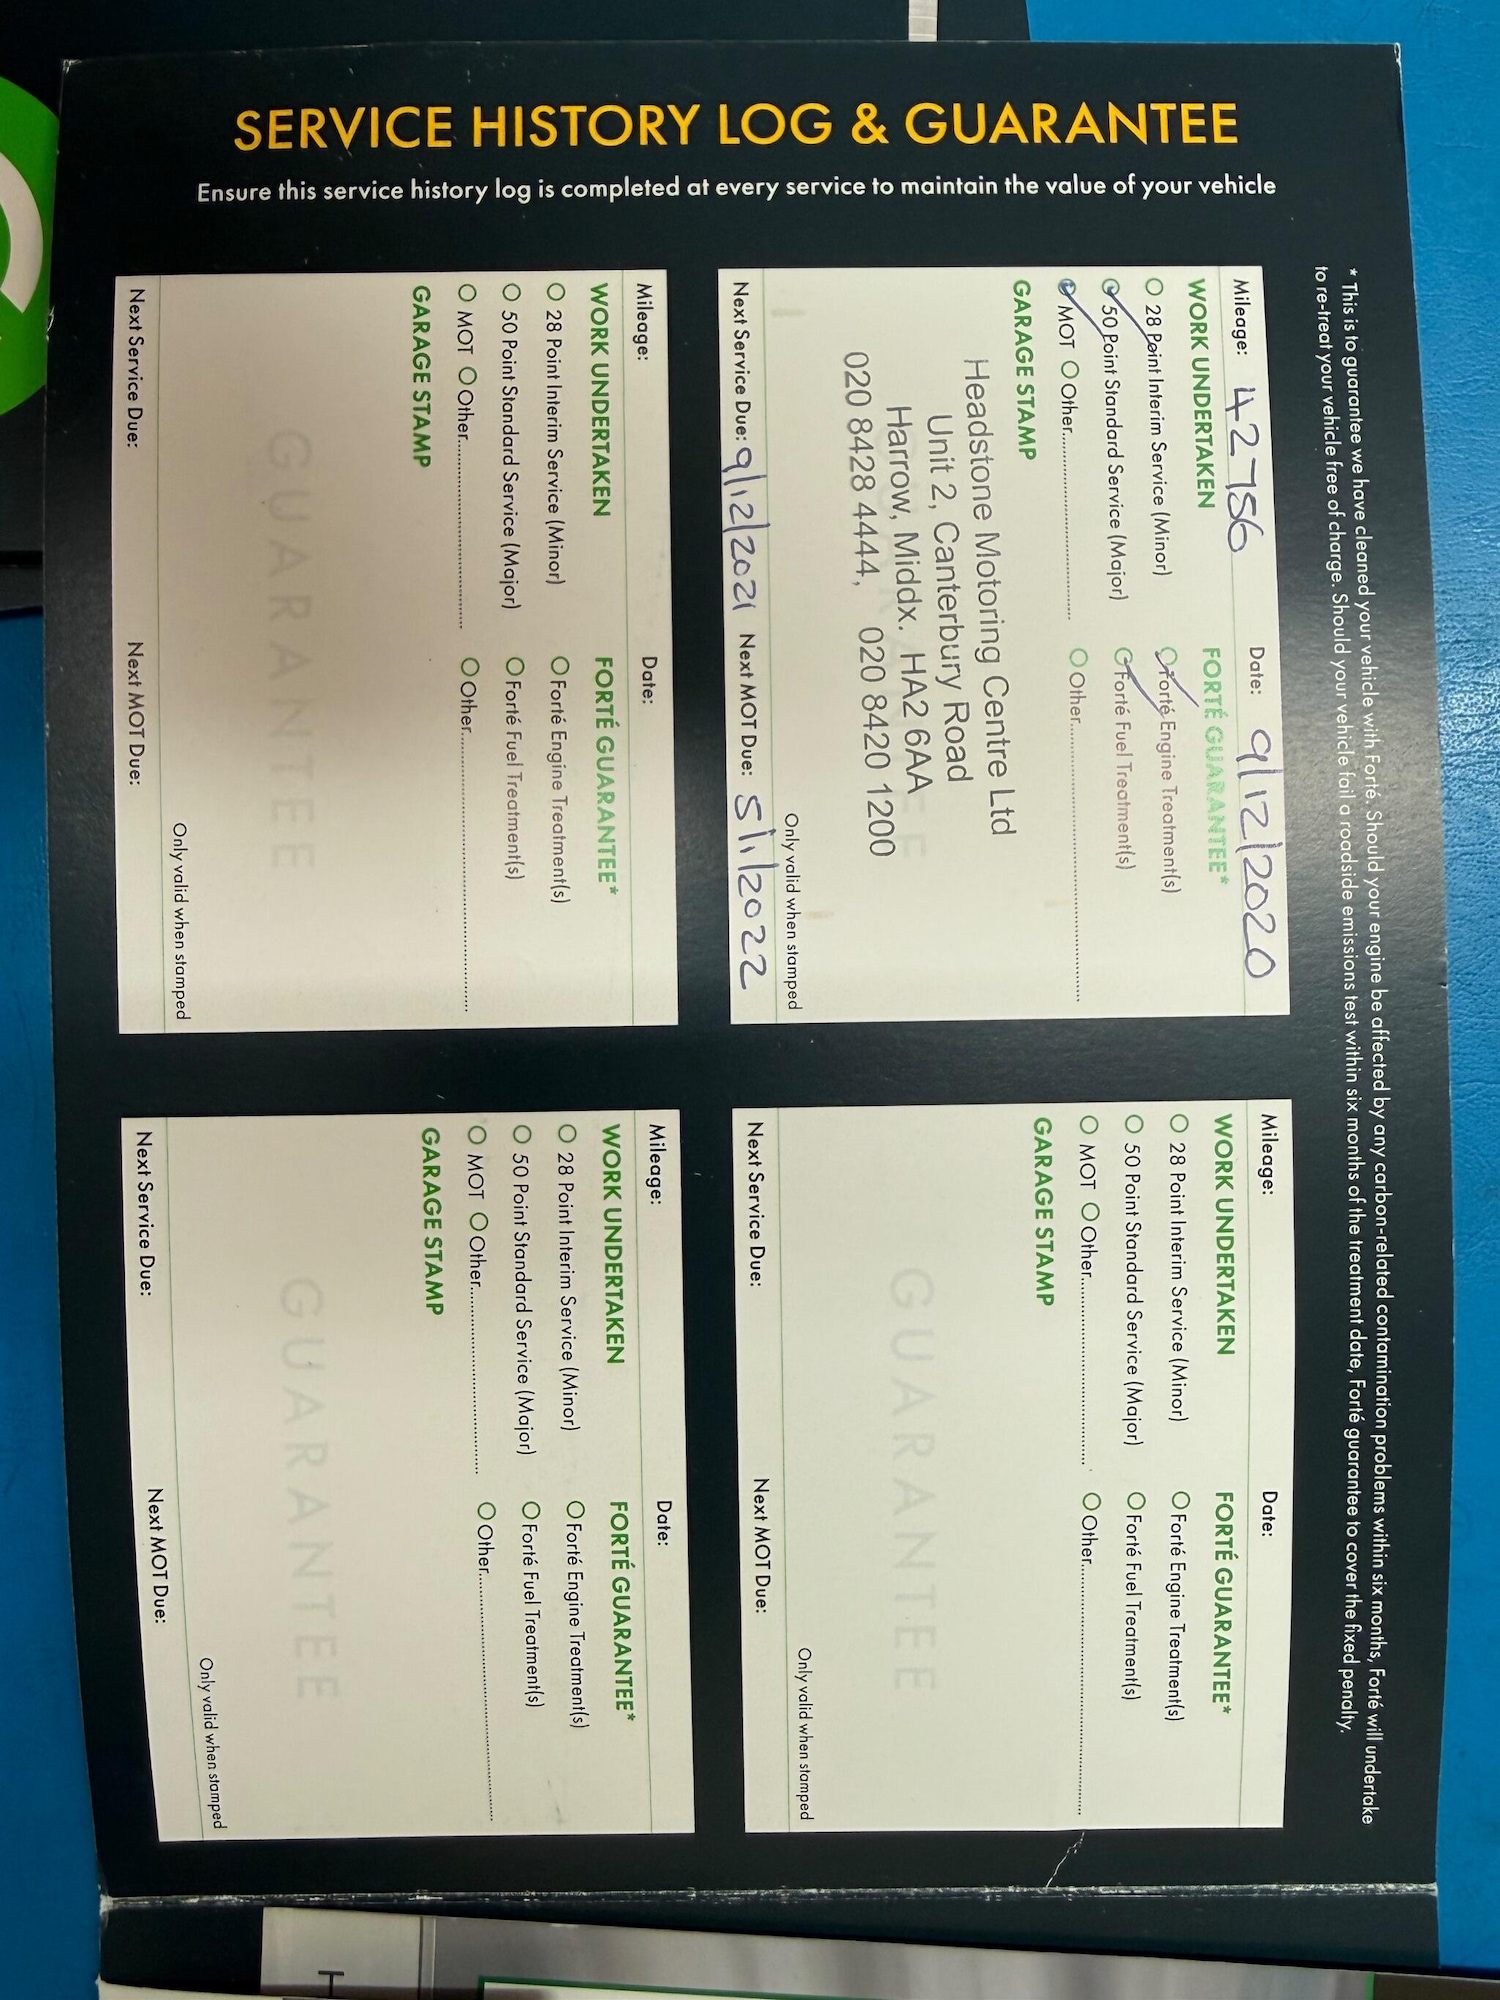 SERVICE HISTORY LOG & GUARANTEE
Ensure this service history log is completed at every service to maintain the value of your vehicle
* This is to guarantee we have cleaned your vehicle with Forté. Should your engine be affected by any carbon-related contamination problems within six months, Forté will undertake
to re-treat your vehicle free of charge. Should your vehicle fail a roadside emissions test within six months of the treatment date, Forté guarantee to cover the fixed penalty.
Mileage: 42756 Date: 9/12/2020
WORK UNDERTAKEN FORTÉ GUARANTEE*
28 Point Interim Service (Minor) Forté Engine Treatment(s)
50 Point Standard Service (Major) Forté Fuel Treatment(s)
MOT Other Other
GARAGE STAMP
Headstone Motoring Centre Ltd
Unit 2, Canterbury Road
Harrow, Middx. HA2 6AA
020 8428 4444, 020 8420 1200
Only valid when stamped
Next Service Due: 9/12/2021 Next MOT Due: 5/1/2022
Mileage: Date:
WORK UNDERTAKEN FORTÉ GUARANTEE*
28 Point Interim Service (Minor) Forté Engine Treatment(s)
50 Point Standard Service (Major) Forté Fuel Treatment(s)
MOT Other Other
GARAGE STAMP
GUARANTEE
Only valid when stamped
Next Service Due: Next MOT Due:
Mileage: Date:
WORK UNDERTAKEN FORTÉ GUARANTEE*
28 Point Interim Service (Minor) Forté Engine Treatment(s)
50 Point Standard Service (Major) Forté Fuel Treatment(s)
MOT Other Other
GARAGE STAMP
GUARANTEE
Only valid when stamped
Next Service Due: Next MOT Due:
Mileage: Date:
WORK UNDERTAKEN FORTÉ GUARANTEE*
28 Point Interim Service (Minor) Forté Engine Treatment(s)
50 Point Standard Service (Major) Forté Fuel Treatment(s)
MOT Other Other
GARAGE STAMP
GUARANTEE
Only valid when stamped
Next Service Due: Next MOT Due: